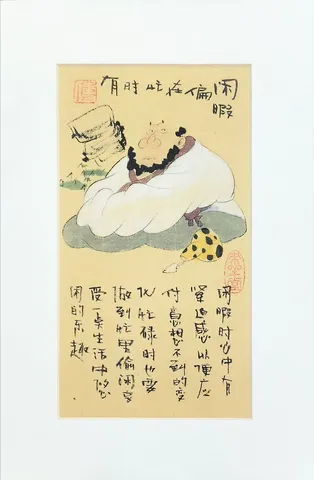 闲暇偏在忙时有
闲暇时心中有
紧迫感以便应
付意想不到的变
化忙碌时也要
做到忙里偷闲享
受一点生活中的悠
闲的乐趣。